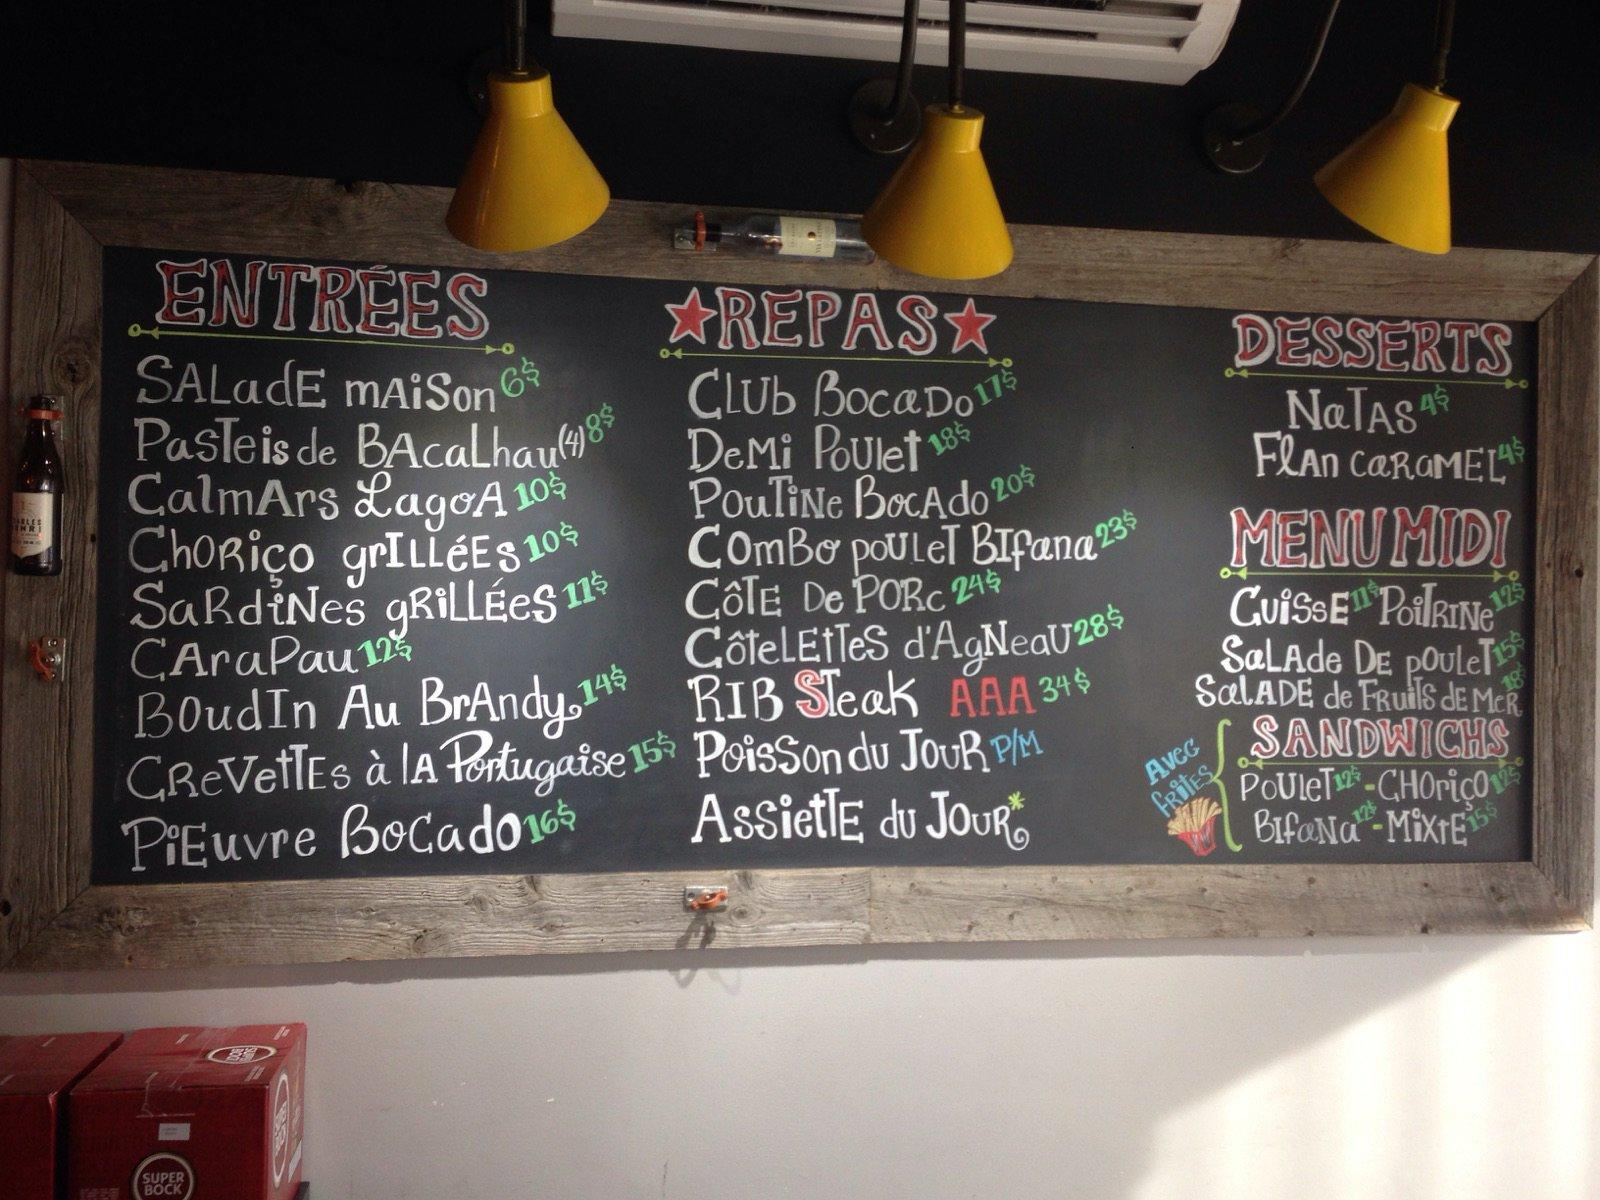 ENTRÉES
SALADE MAISON 6$
PASTEIS de BACALHAU (4) 8$
CALMARS LAGOA 10$
CHORIÇO GRILLÉES 10$
SARDINES GRILLÉES 11$
CARAPAU 12$
BOUDIN AU BRANDY 14$
CREVETTES à LA Portugaise 15$
PIEUVRE BOCADO 16$
REPAS
CLUB BOCADO 17$
DEMI POULET 18$
POUTINE BOCADO 20$
COMBO POULET BIFANA 23$
CÔTE DE PORC 24$
CÔTELETTES d'AGNEAU 28$
RIB STEAK AAA 34$
POISSON du JOUR P/M
ASSIETTE du JOUR*
DESSERTS
NATAS 4$
FLAN CARAMEL 4$
MENU MIDI
CUISSE 11$ POITRINE 12$
SALADE DE POULET 15$
SALADE de FRUITS DE MER 18$
SANDWICHS
AVEC
FRITES
POULET 12$ - CHORIÇO 12$
BIFANA 12$ - MIXTE 15$
SUPER
BOCK
SUPER
BOCK